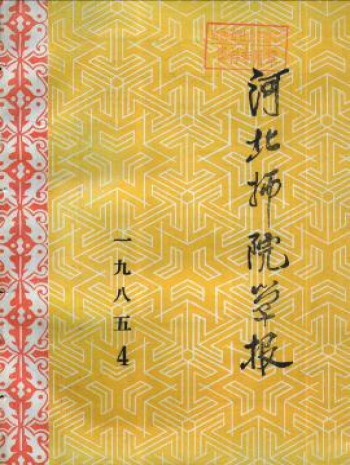 河北师院学报
一九八五
4